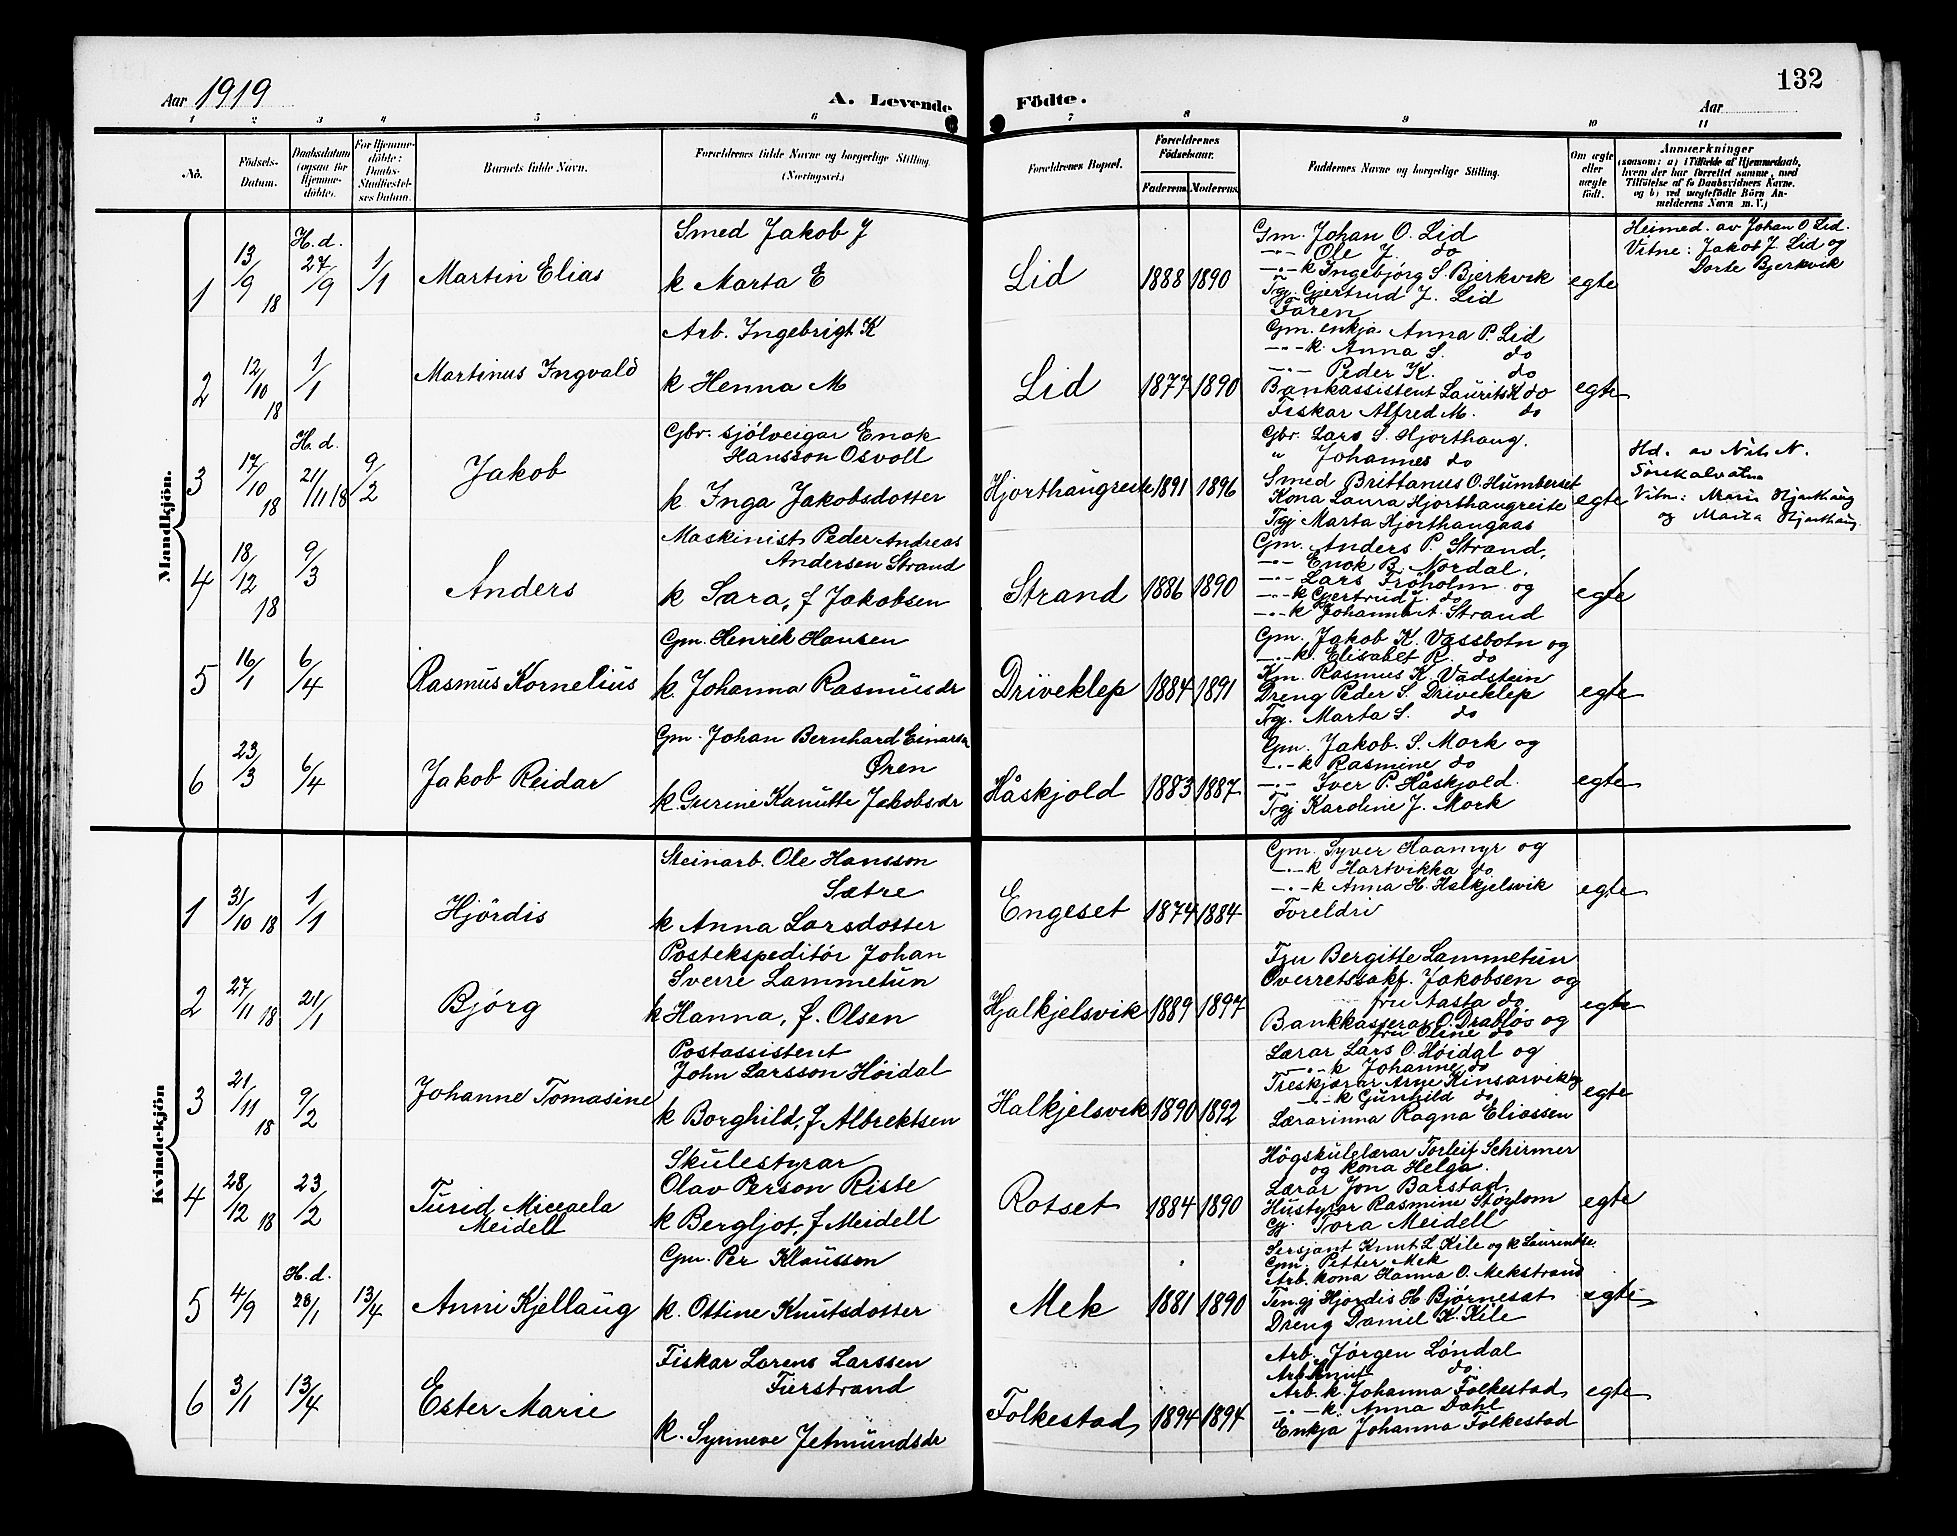 132
Aar 1919
A. Levende Födte.
Aar
1 2 3 4 5 6 7 8 9 10 11
No.
Födsels-Datum.
Daabsdatum (ogsaa for Hjemme-döbte).
For Hjemme-döbte: Daabs-Stadfæstel-ses Datum.
Barnets fulde Navn.
Forældrenes fulde Navne og borgerlige Stilling. (Næringsvei.)
Forældrenes Bopæl.
Forældrenes Födselsaar.
Faderens. Moderens.
Faddernes Navne og borgerlige Stilling.
Om ægte eller uægte født.
Anmærkninger
(saasom: a) i Tilfælde af Hjemmedaab,
hvem der har forrettet samme, med
Tilföielse af to Daabsvidners Navne.
og b) ved uægtefödte Börn An-
melderens Navn m. V.)
Mandkjön.
1 13/9 18 H.d. 27/9 1/1 Martin Elias
Smed Jakob J
k Marta E
Lid 1888 1890
Gm. Johan O. Lid
-"- Ole J. do
-"- k Ingebjörg S. Bjerkvik
Tgj. Gjertrud J. Lid
Faren
egte
Heimed. av Johan O Lid.
Vitne: Jakob J. Lid og
Dorte Bjerkvik
2 12/10 18 1/1 Martinus Ingvald
Arb. Ingebrigt K
k Henna M
Lid 1877 1890
Gm. enkja Anna P. Lid
-"- k. Anna S. do
-"- Peder K. do
Bankassistent Laurits K do
Fiskar Alfred M. do
egte
3 17/10 18 H.d. 21/11 18 9/2 Jakob
Gbr. sjölveigar Enok
Hansson Osvoll
k Inga Jakobsdotter
Hjorthaugreite 1891 1896
Gbr. Lars S. Hjorthaug.
" Johannes do
Smed Brittanus O. Humberset
Kona Laura Hjorthaugreite
Tgj Marta Hjorthaugaas
egte
Hd. av Nils N.
Vitn: Marie Hjorthaug
og Marta Hjorthaug.
4 18/12 18 9/3 Anders
Maskinist Peder Andreas
Andersen Strand
k Sara, f Jakobsen
Strand 1886 1890
Gm. Anders P. Strand,
-"- Enok B. Nordal.
-"- Lars Fröholm og
-"- k Gjertrud J. do
-"- k Johanna A. Strand
egte
5 16/1 6/4 Rasmus Kornelius
Gm. Henrik Hansen
k. Johanna Rasmusdr
Driveklep 1884 1891
Gm. Jakob K. Vassbotn og
-"- k. Elisabet R. do
Km. Rasmus K. Vadstein
Dreng Peder S. Driveklep
Tgj. Marta S. do
egte
6 23/3 6/4 Jakob Reidar
Gm. Johan Bernhard Einarsen
Øren
k Gurine Kanutte Jakobsdr
Håskjold 1883 1887
Gm. Jakob. S. Mork og
-"- k Rasmine do
-"- Iver P. Håskjold.
Tgj Karoline J. Mork
egte
Kvindekjön
1 31/10 18 1/1 Hjördis
Steinarb. Ole Hansson
Sætre
k Anna Larsdotter
Engeset 1874 1884
Gm. Syver Haamyr og
-"- k Hartvikka do
-"- k Anna H. Halkjelsvik
Foreldri
egte
2 27/11 18 21/1 Björg
Postekspeditör Johan
Sverre Lammetun
k Hanna, f. Olsen
Hjalkjelsvik 1889 1897
Fru Bergitte Lammetun
Overretssakf. Jakobsen og
fru Aasta do
Bankkasserar O. Drabløs og
fru Oline do
egte
3 21/11 18 9/2 Johanne Tomasine
Postassistent
John Larsson Höidal
k Borghild, f Albrektsen
Halkjelsvik 1890 1892
Lærar Lars O. Höidal og
-"- k Johanne do
Treskjærar Arne Kinsarvik og
-"- k Gunhild do
Lærarinna Ragna Eliassen
egte
4 28/12 18 23/2 Turid Micaela
Meidell
Skulestyrar
Olav Person Riste
k Bergljot, f Meidell
Rotset 1884 1890
Högskulelærar Torleif Schirmer
og kona Helga.
Lærar Jon Barstad.
Hustyrar Rasmine Støylom
Gj. Tora Meidell
egte
5 4/9 H.d. 28/1 13/4 Anni Kjellaug
Gm. Per Klaussen
k. Ottine Knutsdotter
Mek 1881 1890
Sersjant Knut L. Kile og k Laurentse
Gm. Petter Mek
Arb. kona Hanna O. Mekstrand
Tengj Hjördis H Björneset
Dreng Daniel K. Kile
egte
6 3/1 13/4 Ester Marie
Fiskar Lorens Larssen
Fierstrand
k. Synneve Jetmundsdr
Folkestad 1894 1894
Arb. Jørgen Løndal
Arb Knut do.
Arb. k. Johanna Folkestad
-"- k. Anna Dahl
Enkja Johanna Folkestad
egte